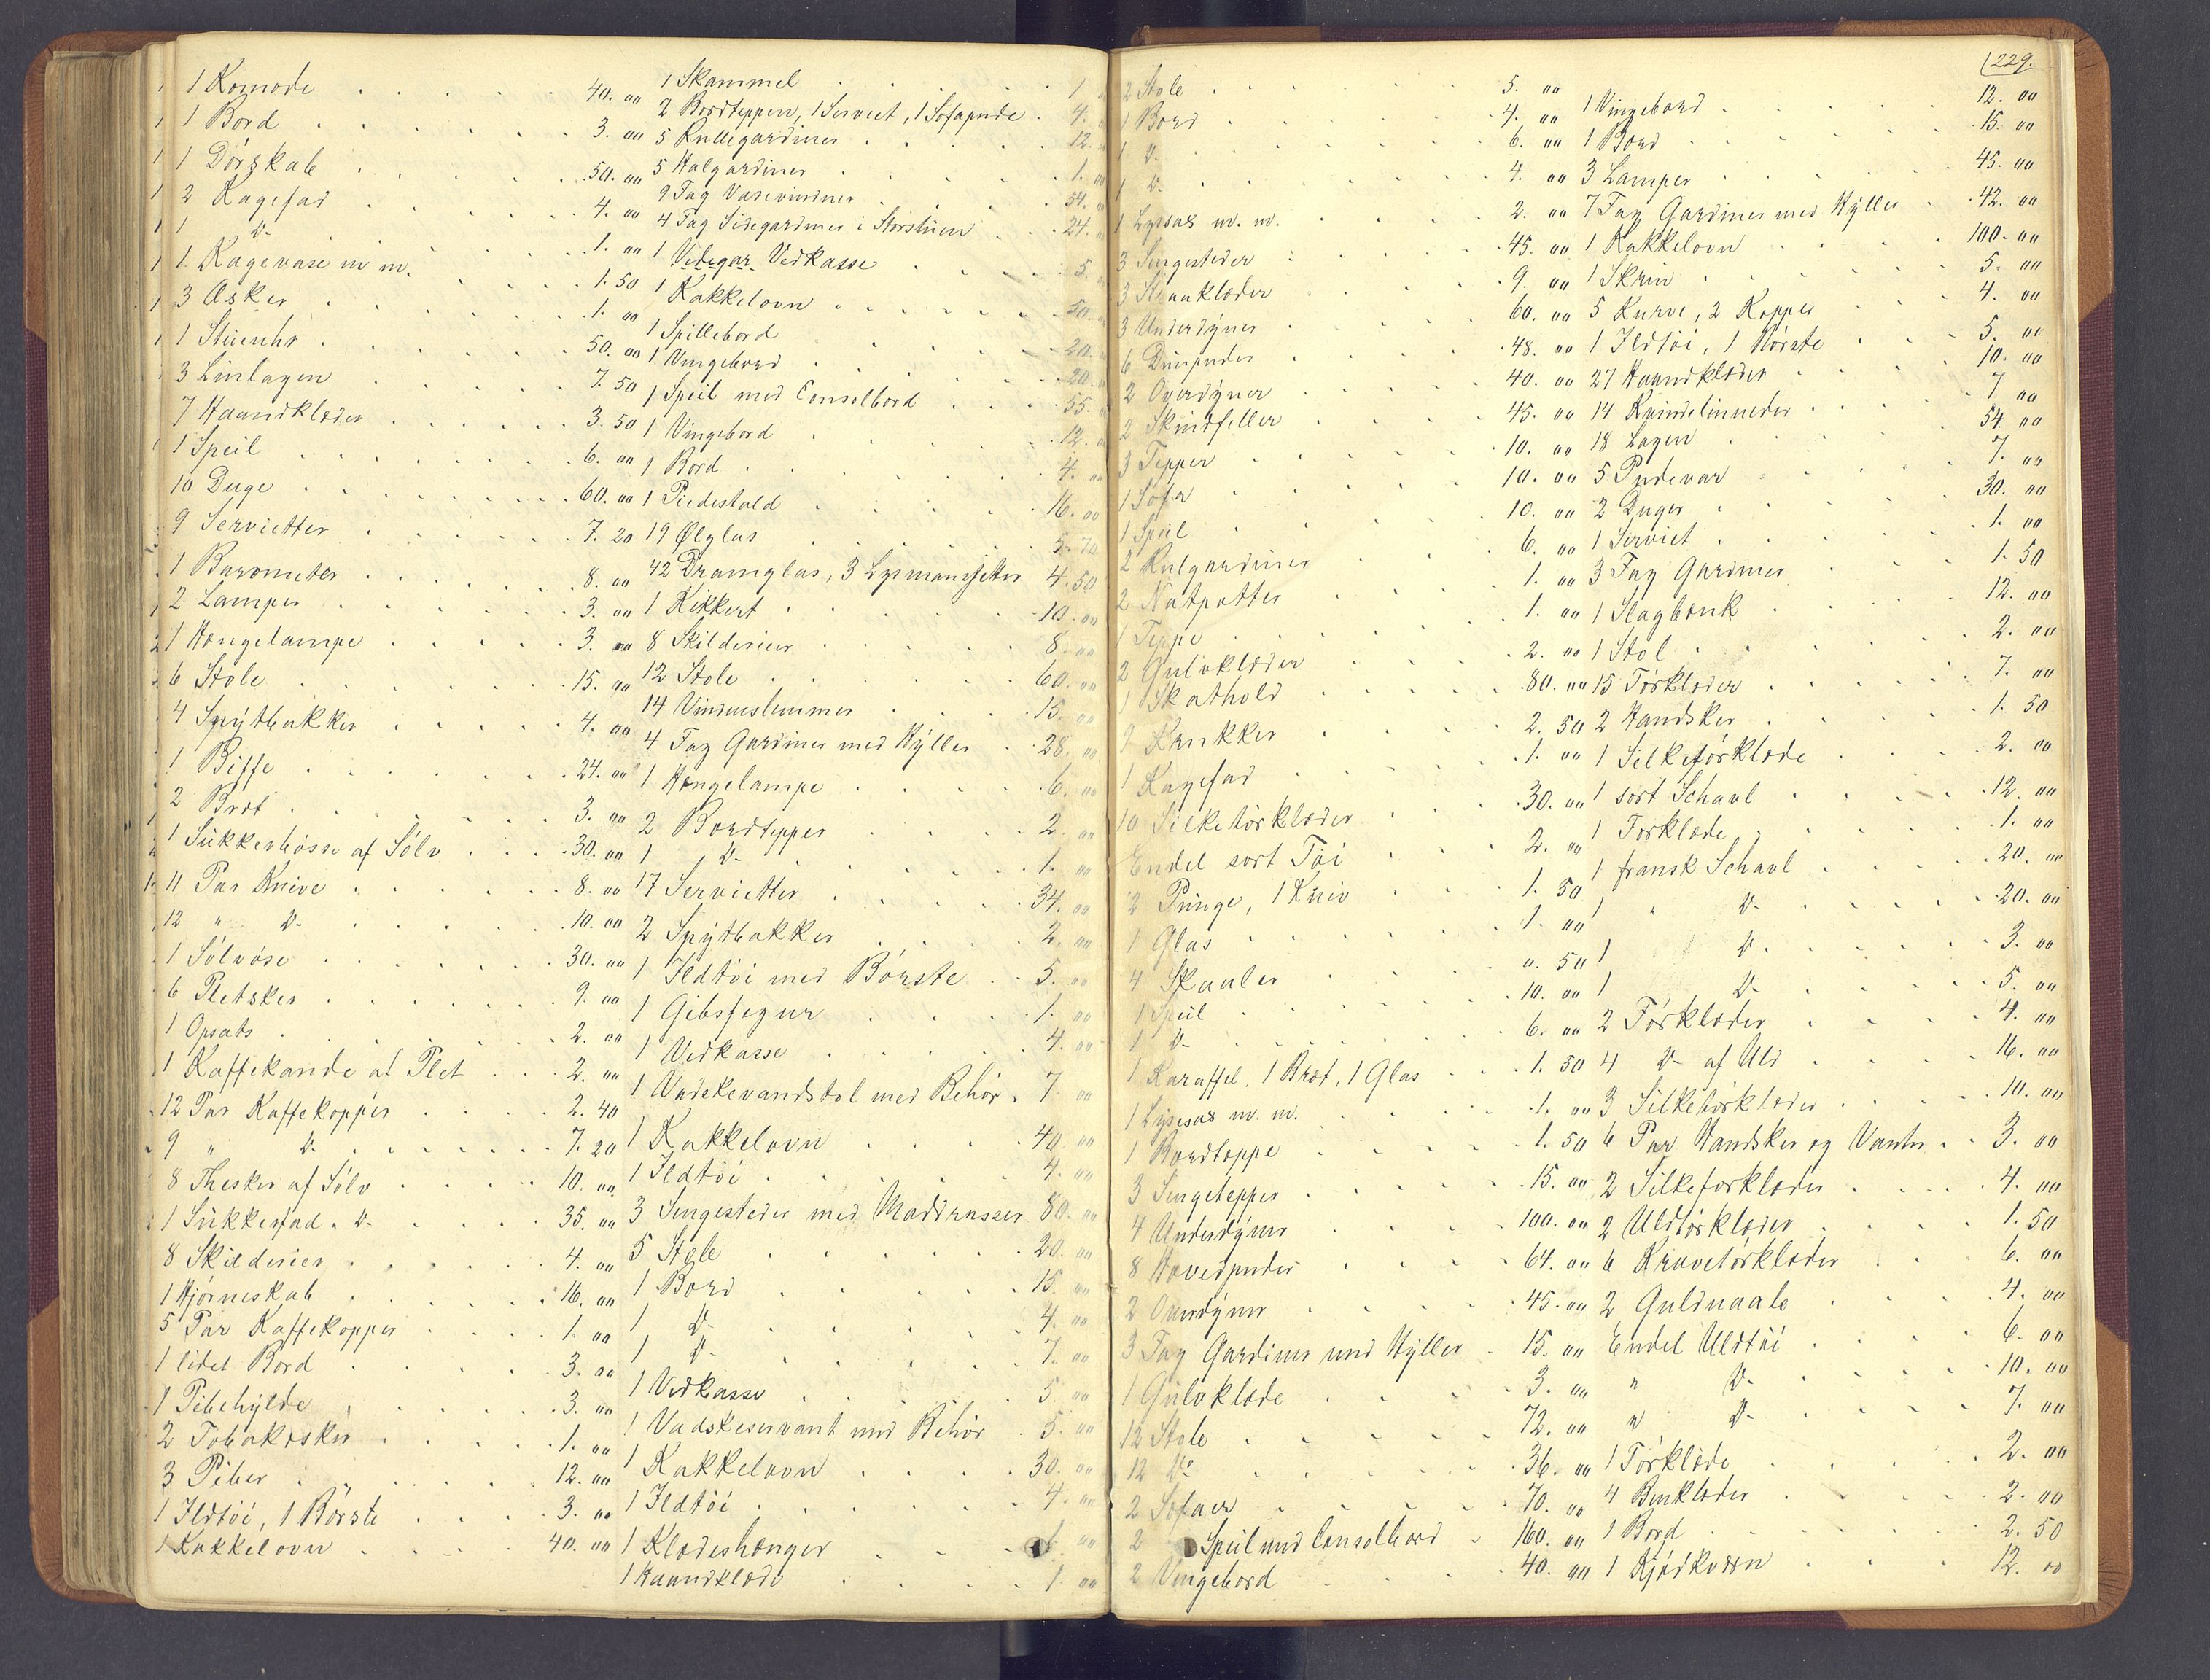 1 Komode 40. 00
1 Bord 3. 00
1 Dørskab 50. 00
2 Kagefad 4. 00
1 D- 1. 00
1 Kagevase m m. 1. 50
3 Æsker 1. 00
1 Stueuhr 50. 00
3 Linlagen 7. 50
7 Haandklæder 3. 50
1 Speil 6. 00
10 Duge 60. 00
9 Servietter 7. 20
1 Barometer 8. 00
2 Lamper 3. 00
1 Hængelampe 3. 00
6 Stole 15. 00
4 Spýtbakker 4. 00
1 Biffe 24. 00
2 Bræt 3. 00
1 Sukkerbøsse af Sølv 30. 00
11 Par Knive 8. 00
12 " D- 10. 00
1 Sølvøse 30. 00
6 Pletskeer 9. 00
1 Opsats 2. 00
1 Kaffekande af Plet 2. 00
12 Par Kaffekopper 2. 40
9 " D- 7. 20
8 Theskeer af Sølv 10. 00
1 Sukkerfad " D- 35. 00
8 Skilderier 4. 00
1 Hjørneskab 16. 00
5 Par Kaffekopper 1. 00
1 lidet Bord 3. 00
1 Pibehylde 3. 00
2 Tobakæsker 1. 00
3 Piber 12. 00
1 Ildtøi, 1 Børste 3. 00
1 Kakkelovn 40. 00
1 Skammel 1
2 Bordtepper, 1 Serviet, 1 Sofapude 4.
5 Rullegardiner 12.
5 Halgardiner 1. 00
9 Fag Varevinduer 54.
4 Fag Sidegardiner i Storstuen 24.
1 Vedegar Vedkasse 5.
1 Kakkelovn 50.
1 Spillebord 20.
1 Vingebord 20.
1 Speil med Consolbord 55.
1 Vingebord 12.
1 Bord 4. 00
1 Piedestald 16. 00
19 Ølglas 5. 70
42 Dramglas, 3 Lysmanssjetter 4. 50
1 Kikkert 10. 00
8 Skilderier 8. 00
12 Stole 60. 00
14 Vinduuslemmer 15. 00
4 Fag Gardiner med Hýller 28. 00
1 Hængelampe 6. 00
2 Bordtepper 2. 00
1 D- 1. 00
17 Servietter 34. 00
2 Spýtbakker 2. 00
1 Ildtøi med Børste 5. 00
1 Gibsfigur 1. 00
1 Vedkasse 4. 00
1 Vadskevandstol med Behør 7. 00
1 Kakkelovn 40. 00
1 Ildtøi 4. 00
3 Sengesteder med Maddrasser 80. 00
5 Stole 20. 00
1 Bord 15. 00
1 D- 4. 00
1 D- 7. 00
1 Vedkasse 5. 00
1 Vadskeservant med Behør 5. 00
1 Kakkelovn 30. 00
1 Ildtøi 4. 00
1 Klædeshænger 00
1 Haandklæde 1. 00
229.
2 Stole 5. 00
1 Bord 4. 00
1 D- 6. 00
1 D- 4. 00
1 Lysesax m. m. 2. 00
3 Sengesteder 45. 00
3 Straaklæder 9. 00
3 Underdýner 60. 00
6 Duunpuder 48. 00
2 Overdýner 40. 00
2 Skindfeller 45. 00
3 Tepper 10. 00
1 Sofa 10. 00
1 Speil 10. 00
2 Rulgardiner 6. 00
2 Natpotter 1. 00
1 Teppe 1. 00
2 Gulvklæder 2. 00
1 Skathold 80. 00
2 Krukker 2. 50
1 Kagefad 1. 00
10 Silketørklæder 30. 00
Endel sort Tøi 2. 00
2 Punge, 1 Kniv 1. 50
1 Glas 1. 00
4 Skauler 0. 50
1 Speil 10. 00
1 D- 6. 00
1 Karaffel, 1 Bræt, 1 Glas 1. 50
1 Lysesax m. m. 1. 00
1 Bordteppe 1. 50
3 Sengetepper 15. 00
4 Underdýner 100. 00
8 Hovedpuder 64. 00
2 Overdýner 45. 00
3 Fag Gardiner med Hýller 15. 00
1 Gulvklæde 3. 00
12 Stole 72. 00
12 Do 36. 00
2 Sofaer 70. 00
2 Speil med Consolbord 160. 00
2 Vingebord 40. 00
1 Vingebord 12. 00
1 Bord 15. 00
3 Lamper 45. 00
7 Fag Gardiner med Hýller 42. 00
1 Kakkelovn 100. 00
1 Skrin 5. 00
5 Kurve, 2 Kopper 4. 00
1 Ildtøi, 1 Børste 5. 00
27 Haandklæder 10. 00
14 Kvindelinneder 7. 00
18 Lagen 54. 00
5 Pudevar 7. 00
2 Duger 30. 00
1 Serviet 1. 00
3 Fag Gardiner 1. 50
1 Slagbænk 12. 00
1 Stol 2. 00
15 Tørklæder 7. 00
2 Handsker 1. 50
1 Silketørklæde 2. 00
1 sort Schavl 12. 00
1 Tørklæde 1. 00
1 fransk Schavl 20. 00
1 " D- 20. 00
1 D- 3. 00
1 D- 5. 00
2 Tørklæder 4. 00
4 D- af Uld 16. 00
3 Silketørklæder 10. 00
6 Par Handsker og Vanter 3. 00
2 Silkeforklæder 4. 00
2 Uldtørklæder 1. 50
6 Kravetørklæder 6. 00
2 Guldnaale 4. 00
Endel Uldtøi 6. 00
" D- 10. 00
" D- 7. 00
1 Tørklæde 2. 00
4 Benklæder 2. 00
1 Bord 2. 50
1 Kjødkværn 12. 00